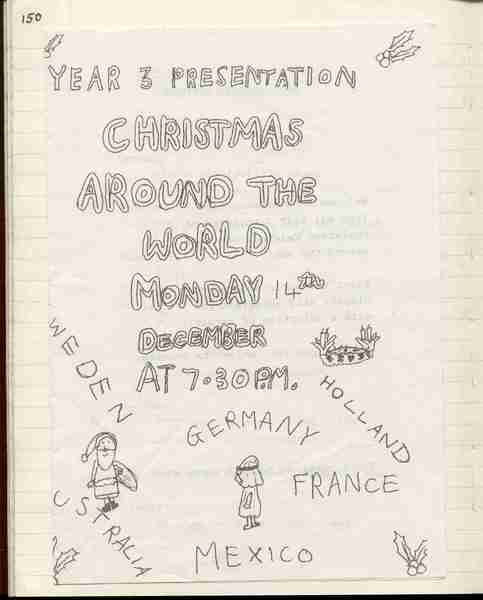 150
YEAR 3 PRESENTATION
CHRISTMAS
AROUND THE
WORLD
MONDAY 14TH
DECEMBER
AT 7.30 P.M.
WEDEN
HOLLAND
GERMANY
FRANCE
USTRALIA
MEXICO